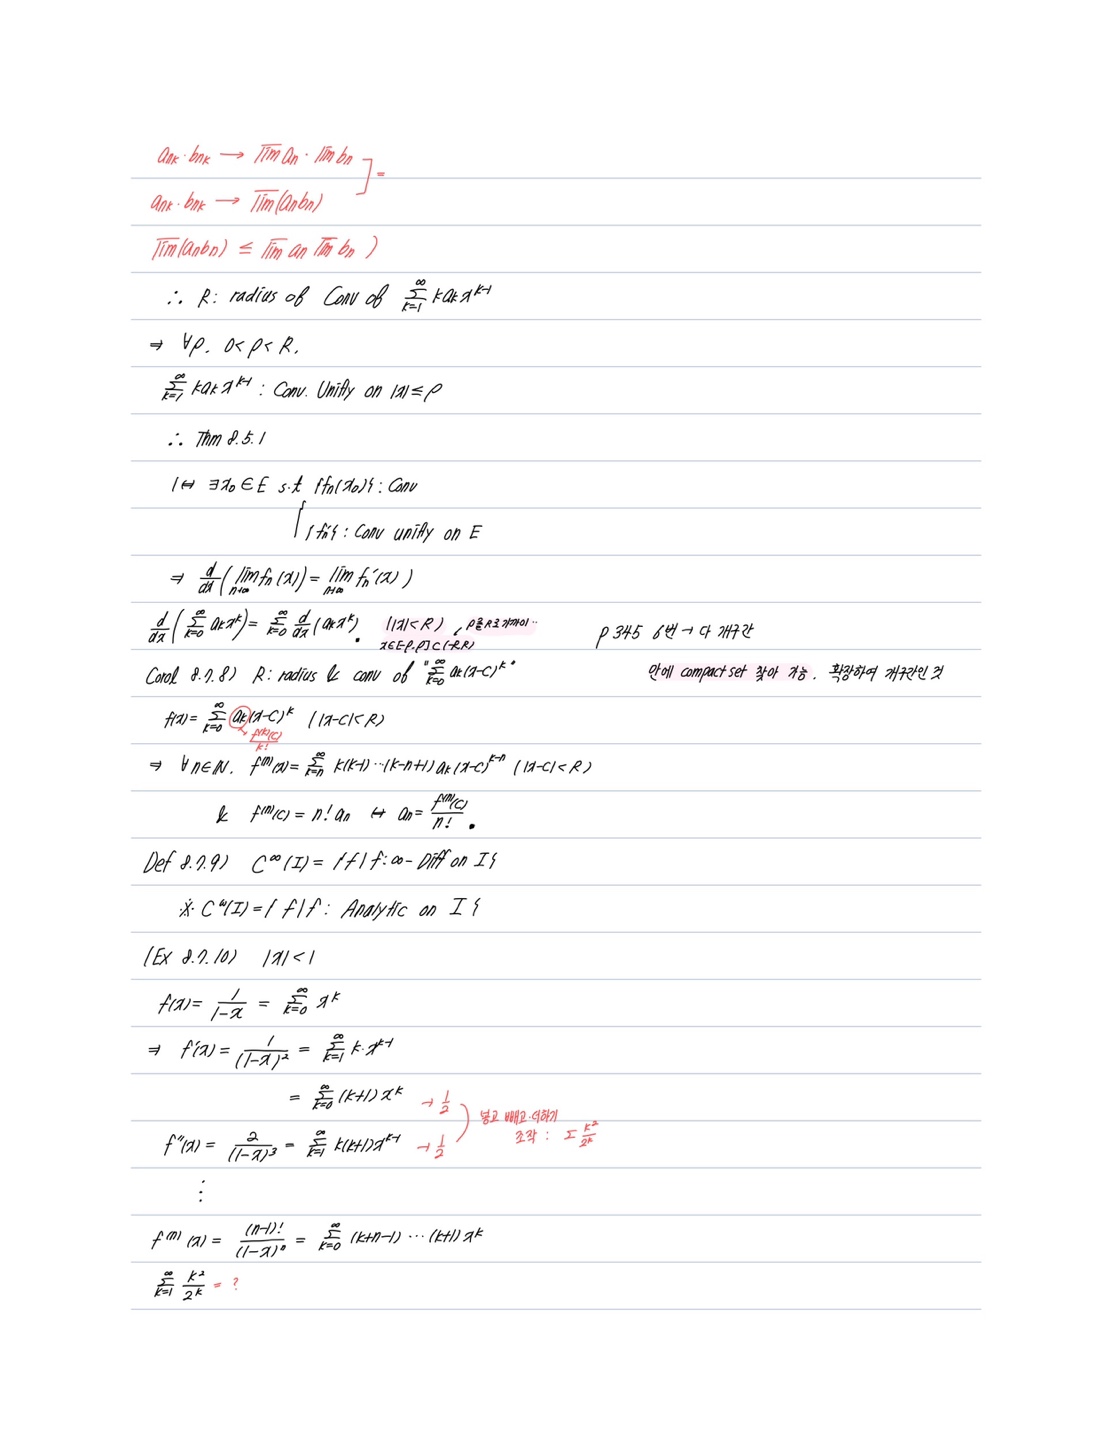 a_{nk}·b_{nk} → \overline{lim} a_n · lim b_n ] =
a_{nk}·b_{nk} → \overline{lim}(a_n b_n)
\overline{lim}(a_n b_n) ≤ \overline{lim} a_n \overline{lim} b_n )
∴ R: radius of Conv of \sum_{k=1}^{∞} k a_k x^{k-1}
⇒ ∀ρ, 0<ρ<R,
\sum_{k=1}^{∞} k a_k x^{k-1} : Conv. Unifly on |x| ≤ ρ
∴ Thm 8.5.1
(↔ ∃x_0 ∈ E s.t {f_n(x_0)} : Conv
{f_n'} : Conv unifly on E
⇒ \frac{d}{dx}( \lim_{n→∞} f_n(x) ) = \lim_{n→∞} f_n'(x) )
\frac{d}{dx}( \sum_{k=0}^{∞} a_k x^k ) = \sum_{k=0}^{∞} \frac{d}{dx}(a_k x^k). (|x|<R) , ρ를 R로 가까이..
x∈[-ρ,ρ]⊂(-R,R)
p 345 6번 → 다 개구간
안에 compact set 찾아 가능. 확장하여 개구간인 것
Corol 8.7.8) R: radius & conv of "\sum_{k=0}^{∞} a_k(x-c)^k"
f(x) = \sum_{k=0}^{∞} a_k(x-c)^k (|x-c|<R)
\frac{f^{(k)}(c)}{k!}
⇒ ∀n∈ℕ, f^{(n)}(x) = \sum_{k=n}^{∞} k(k-1)⋯(k-n+1) a_k (x-c)^{k-n} (|x-c|<R)
& f^{(n)}(c) = n! a_n ↔ a_n = \frac{f^{(n)}(c)}{n!} .
Def 8.7.9) C^∞(I) = {f | f: ∞-Diff on I}
※ C^ω(I) = {f | f : Analytic on I}
(Ex 8.7.10) |x|<1
f(x) = \frac{1}{1-x} = \sum_{k=0}^{∞} x^k
⇒ f'(x) = \frac{1}{(1-x)^2} = \sum_{k=1}^{∞} k·x^{k-1}
= \sum_{k=0}^{∞} (k+1) x^k → \frac{1}{2}
넣고 빼고 더하기
조작 : Σ \frac{k^2}{2^k}
f''(x) = \frac{2}{(1-x)^3} = \sum_{k=1}^{∞} k(k+1)x^{k-1} → \frac{1}{2}
⋮
f^{(n)}(x) = \frac{(n-1)!}{(1-x)^n} = \sum_{k=0}^{∞} (k+n-1) ⋯ (k+1) x^k
\sum_{k=1}^{∞} \frac{k^2}{2^k} = ?